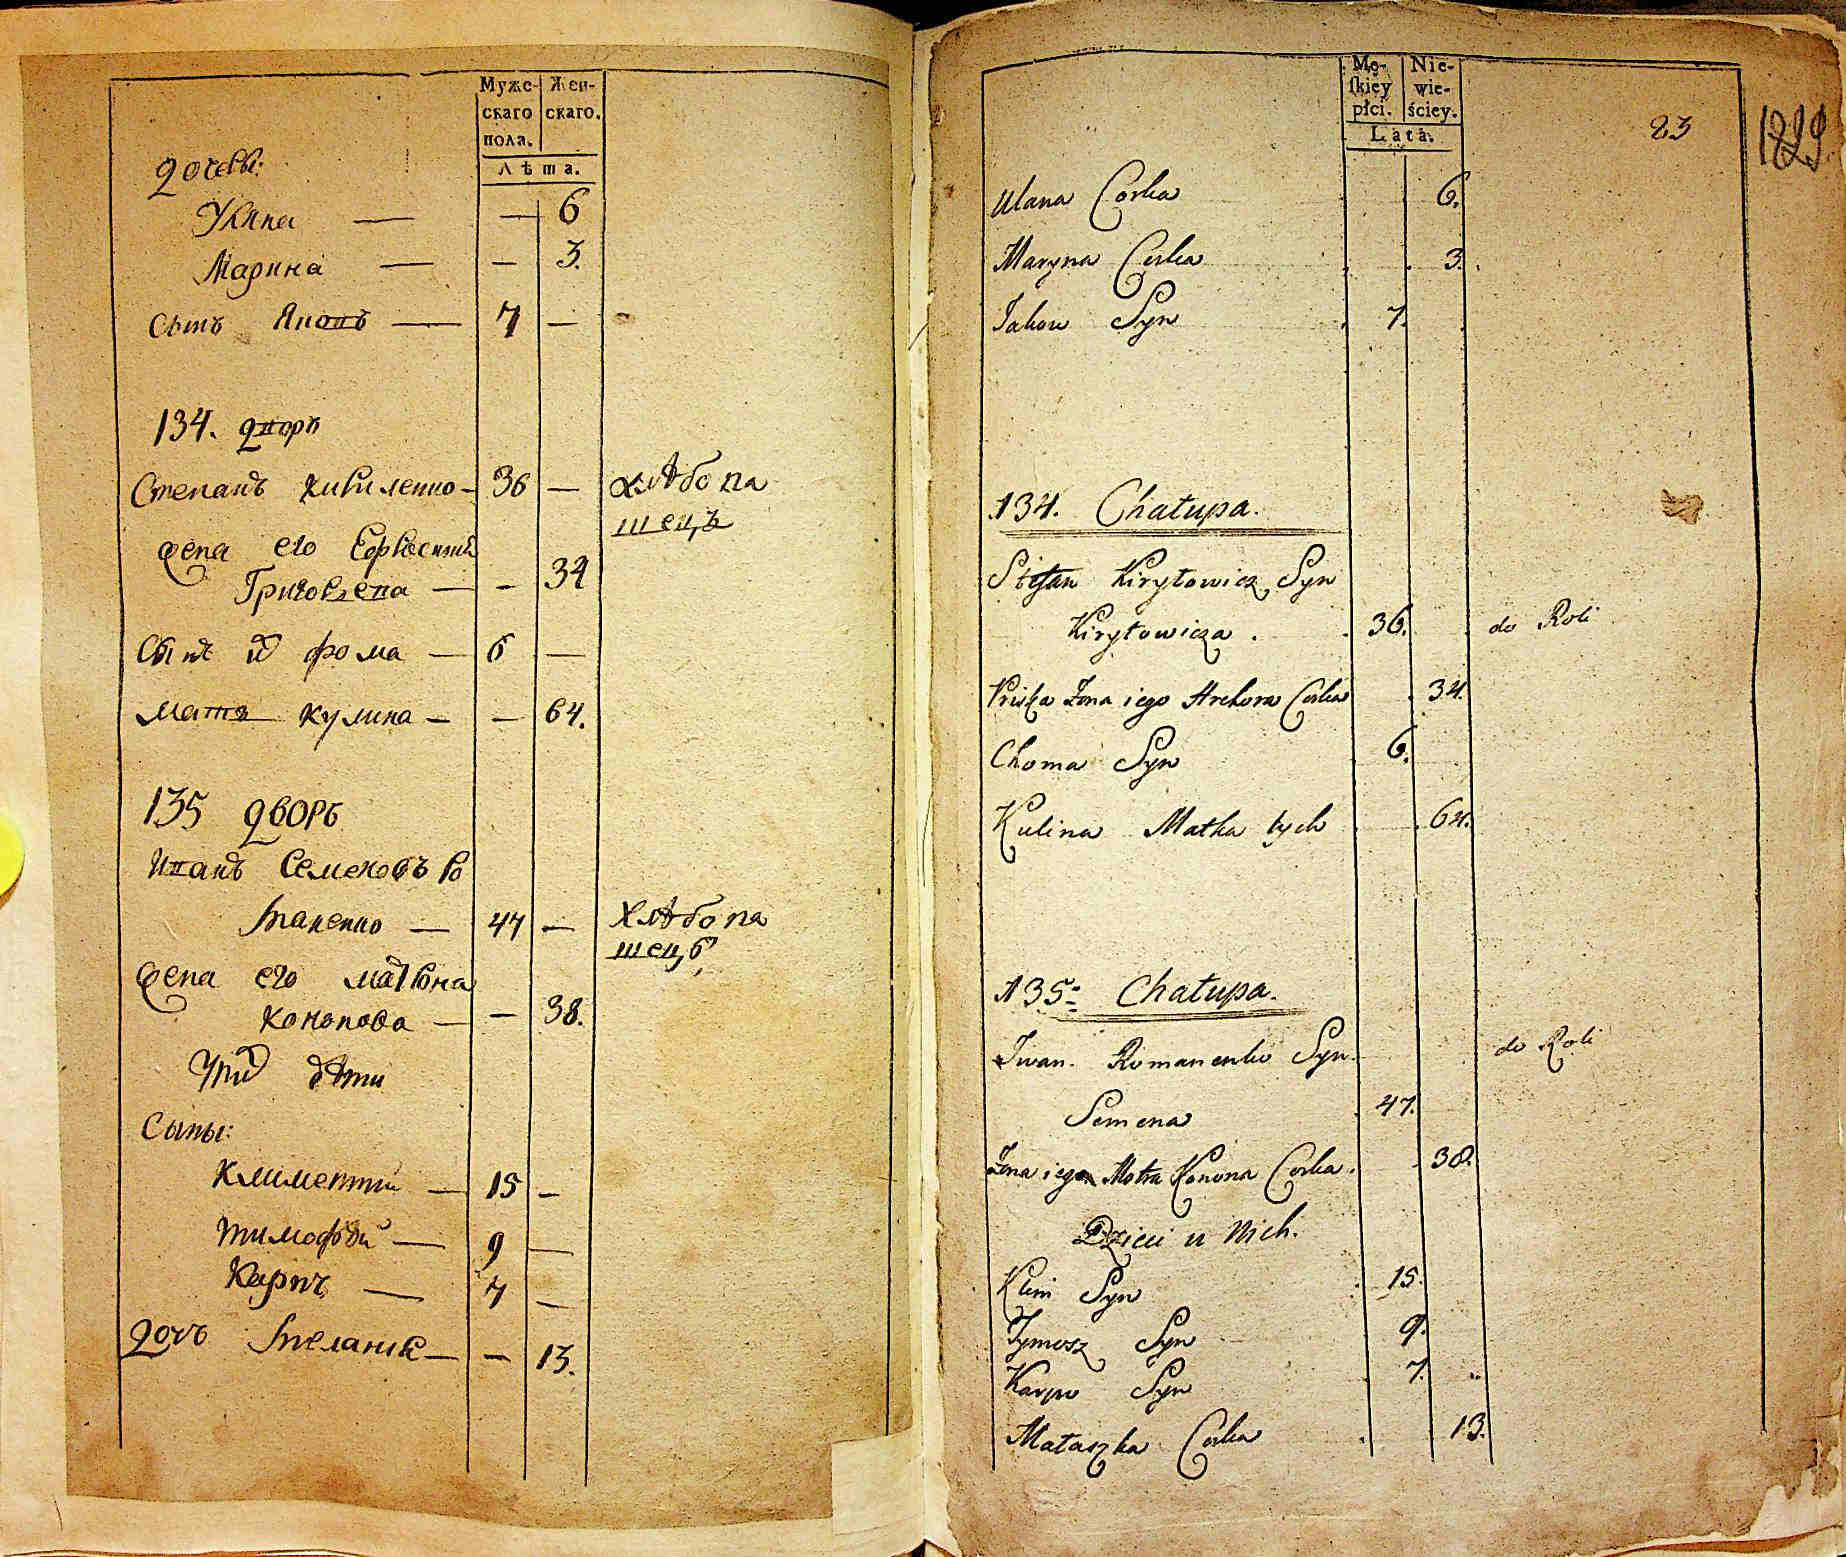 Муже-
скаго
пола.
Жен-
скаго.
Лѣта.
Дочери:
Ульяна — — 6
Марина — — 3.
Сынъ Яковъ — 7 —
134. дворъ
Степанъ Кириленко — 36 — хлѣбопа
шецъ
жена его Ефросинья
Григорьева — — 34
Сынъ Фома — 6 —
мать Кулина — — 64.
135 дворъ
Иванъ Семеновъ Ро
маненко — 47 — хлѣбопа
шецъ
жена его Матрона
Кононова — — 38.
дѣти
Сыны:
Климентий — 15 —
Тимофѣй — 9 —
Карпъ — 7 —
Дочь Меланія — — 13.
Mę-
skiey
płci.
Nie-
wie-
ściey.
Lata.
23
1829
Ulana Corka 6.
Maryna Corka 3.
Jakow Syn 7.
134. Chałupa.
Stefan Kiryłowicz Syn
Kiryłowicza. 36. do Roli
Priska Żona iego Hrehora Corka 34.
Choma Syn 6.
Kulina Matka tych 64.
135. Chałupa.
Iwan Romanenko Syn do Roli
Semena 47.
Żona iego Motra Konona Corka. 38.
Dzieci u nich.
Klim Syn 15.
Tymosz Syn 9.
Karpo Syn 7.
Małaszka Corka 13.